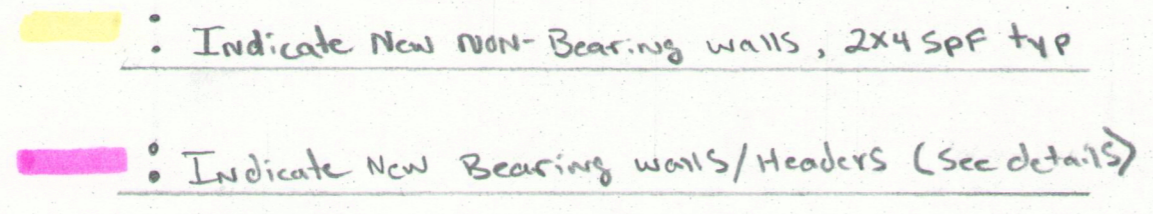 : Indicate New NON-Bearing walls, 2x4 SPF typ
: Indicate New Bearing walls/Headers (See details)